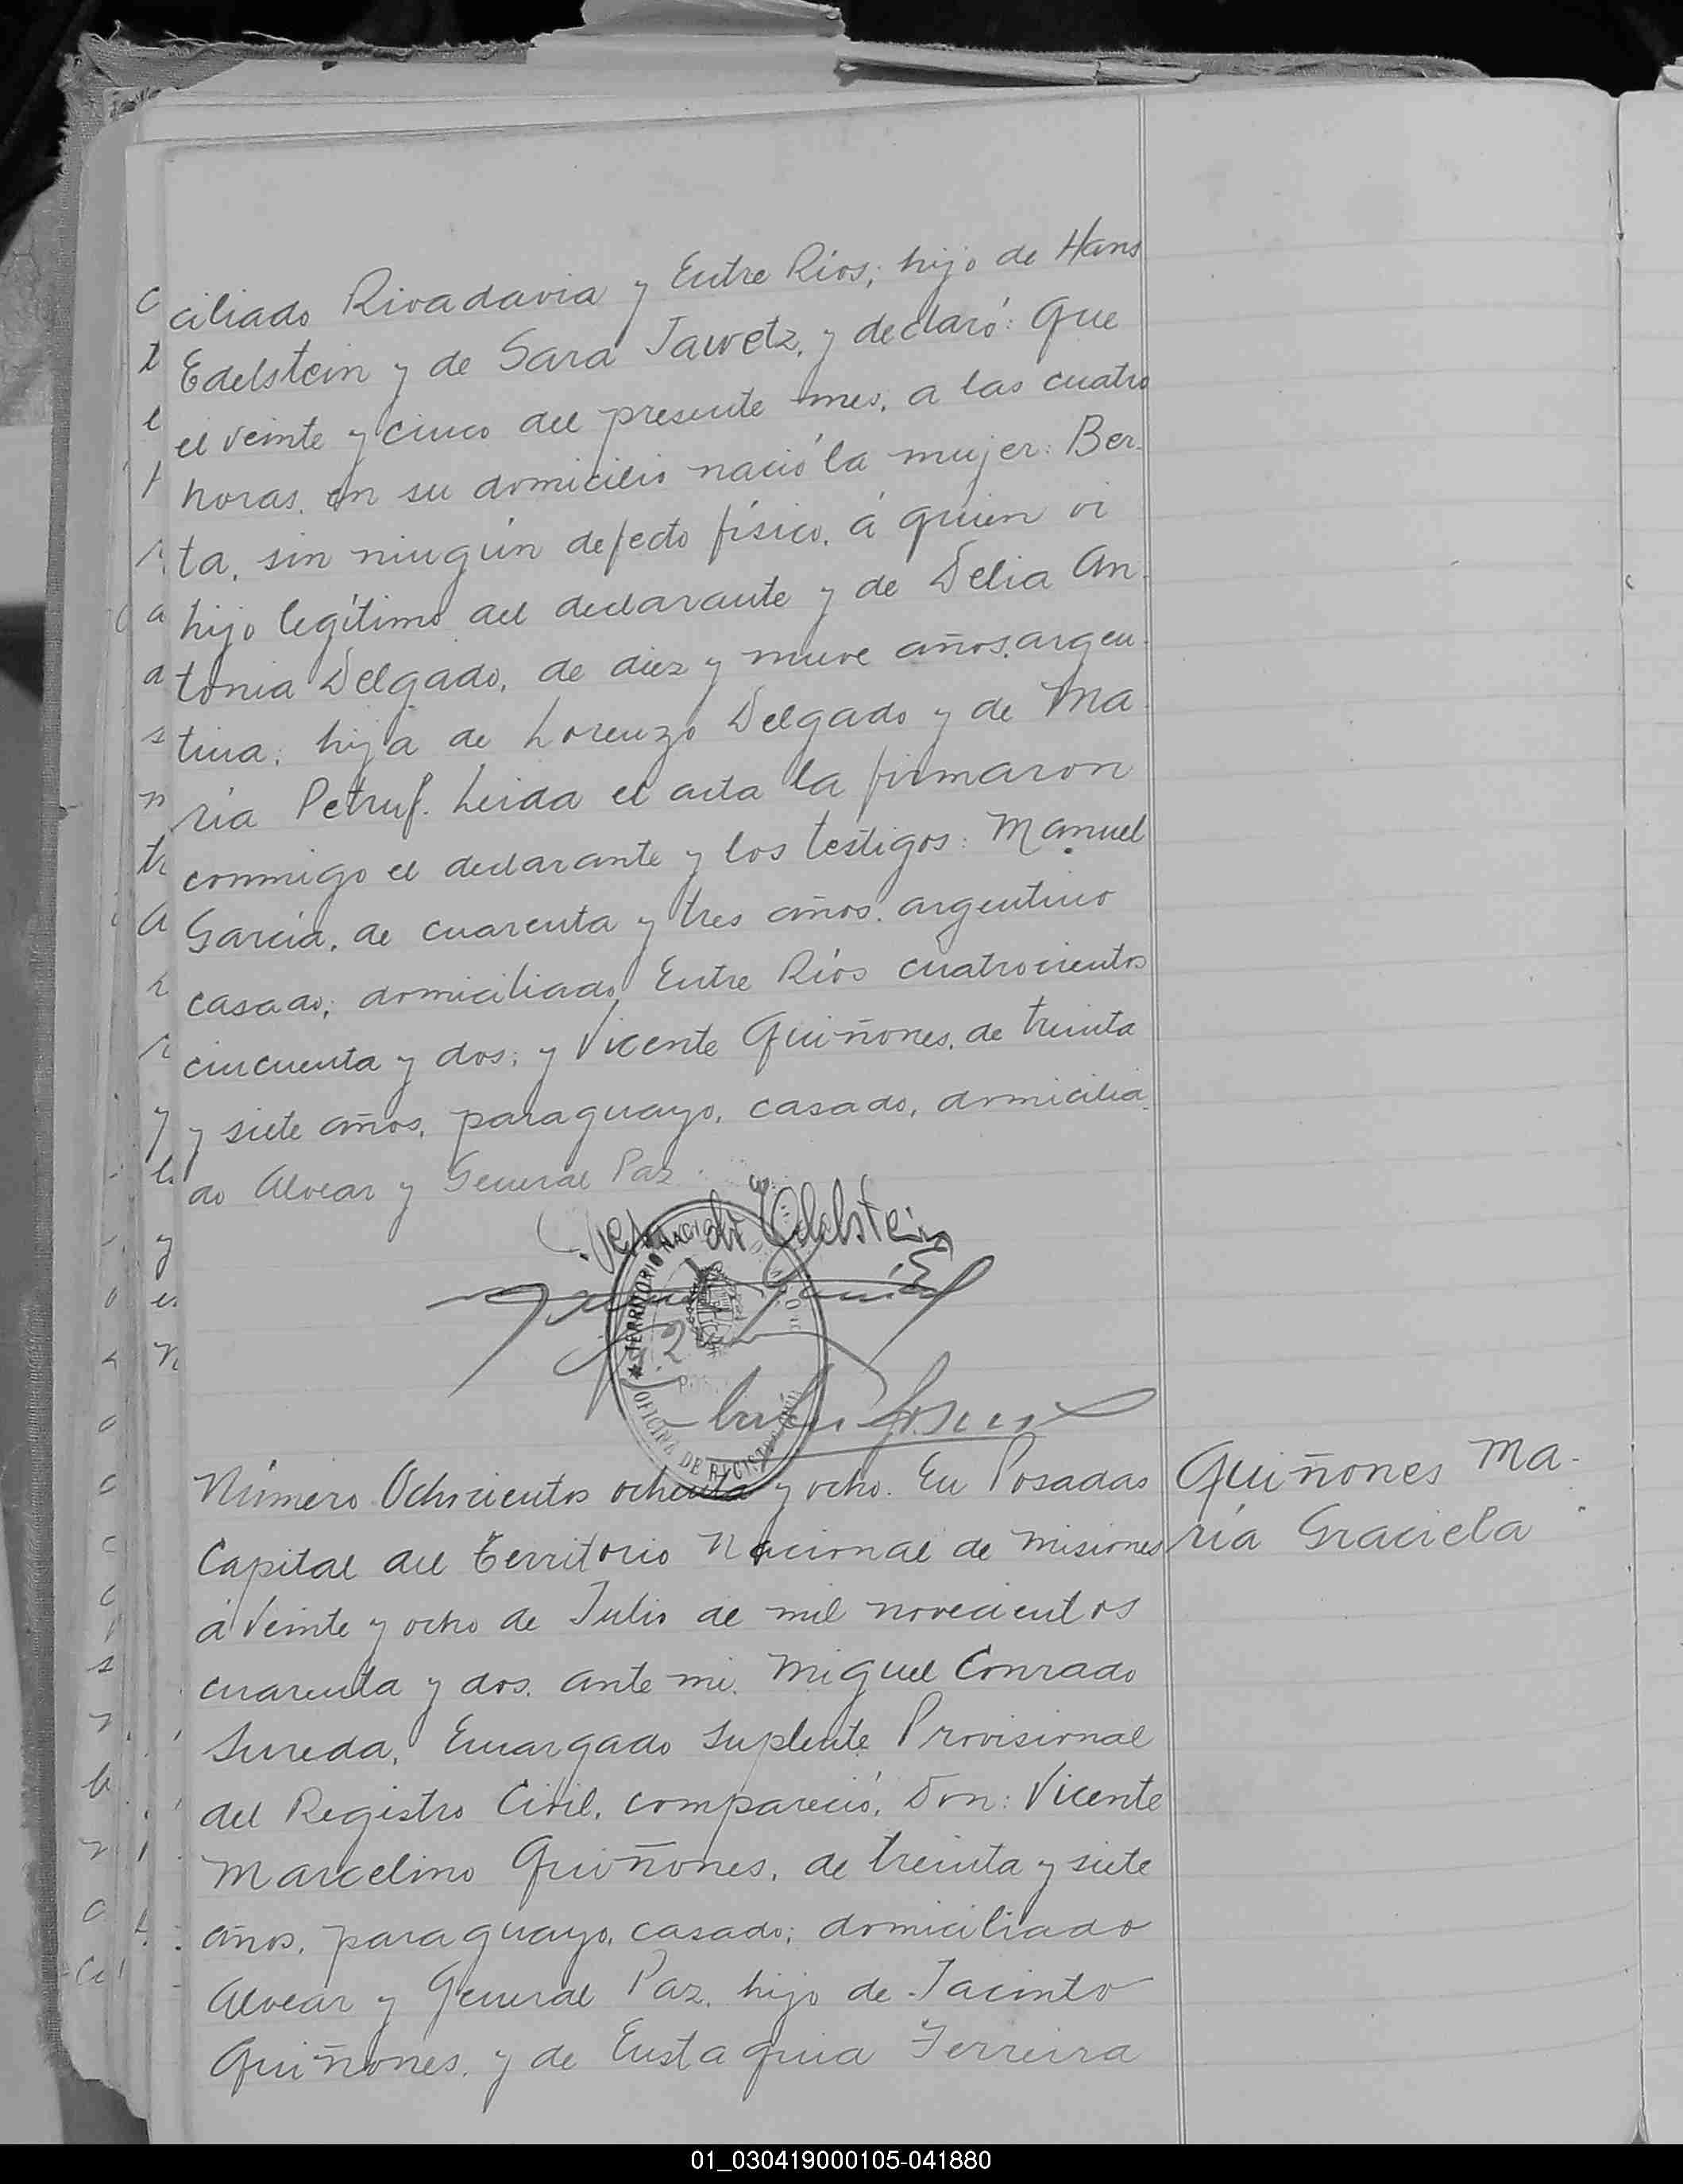 ciliado Rivadavia y Entre Rios; hijo de Hans
Edelstein y de Sara Jawetz, y declaró: Que
el veinte y cinco del presente mes, a las cuatro
horas, en su domicilio nació la mujer: Ber-
ta, sin ningún defecto físico, á quien vi
hijo legítimo del declarante y de Delia An-
tonia Delgado, de diez y nueve años, argen-
tina; hija de Lorenzo Delgado y de Ma-
ria Petruf. Leida el acta la firmaron
conmigo el declarante y los testigos: Manuel
García, de cuarenta y tres años, argentino
casado; domiciliado Entre Ríos cuatrocientos
cincuenta y dos; y Vicente Quiñones, de treinta
y siete años, paraguayo, casado, domicilia-
do Alvear y General Paz.
Edelstein
TERRITORIO NACIONAL
OFICINA DE REGISTRO
Número Ochocientos ochenta y ocho. En Posadas
Capital del Territorio Nacional de Misiones
á Veinte y ocho de Julio de mil novecientos
cuarenta y dos, ante mi, Miguel Conrado
Sureda, Encargado Suplente Provisional
del Registro Civil, compareció, Don: Vicente
Marcelino Quiñones, de treinta y siete
años, paraguayo, casado; domiciliado
Alvear y General Paz, hijo de Jacinto
Quiñones, y de Eustaquia Ferreira
Quiñones Ma-
ría Graciela
01_030419000105-041880